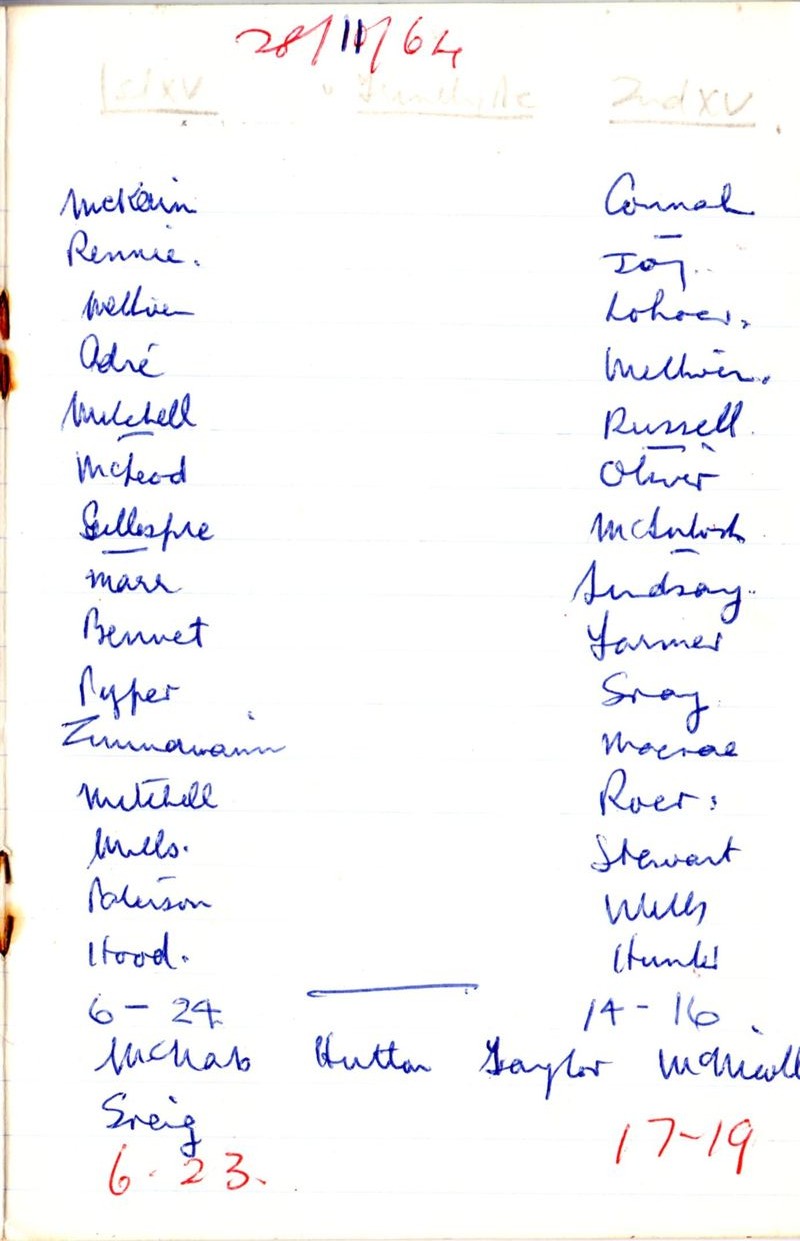 28/11/64
1st XV 2nd XV
McKain Connah
Rennie. Joy.
Methven
Adié Methven.
Mitchell Russell.
McLeod Oliver
Gillespie McIntosh
Marr Lindsay.
Bennet Farmer
Pypper Gray
Zimmermann Macrae
Mitchell
Mills. Stewart
Robinson Wells
Hood. Hunter
6 - 24 14 - 16
McNab Hutton Taylor McNicoll
Greig
6-23. 17-19